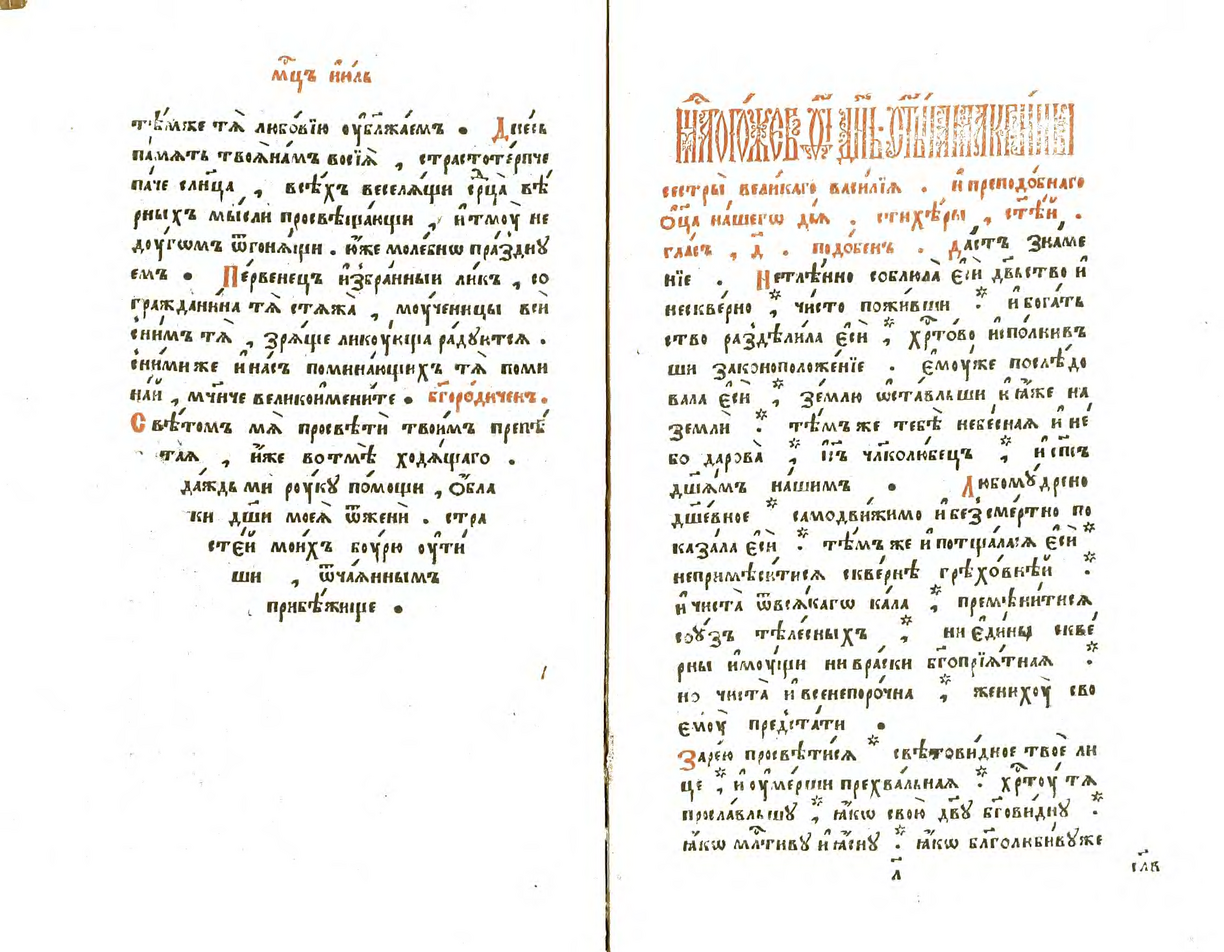 мⷭ҇цъ і҆ю́ль
тѣ́мже тѧ̀ любо́вїю оу҆бл҃жа́емъ • Дне́сь
па́мѧть твоѧ̀на́мъ восїѧ̀ , страстоте́рпче
па́че сл҃нца , всѣ́хъ веселѧ́щи ср҃дца̀ вѣ́
рныхъ мы́сли просвѣща́ющи , и҆тмоу̀ не
доу́гѡмъ ѿгонѧ́щи . ю҆́же моле́бнѡ пра́здну
емъ • Пе́рвенецъ и҆збра́нныи ли́къ , со
гражданни́на тѧ̀ стѧжа̀ , моу́ченицы всѝ
сни́мъ тѧ̀ , зрѧ́ще лико́ующа ра́дуютсѧ .
сни́миже и҆на́съ помина́ющихъ тѧ̀ помѧ
на́й , мч҃нче великоимени́те • бг҃оро́диченъ .
Свѣ́томъ мѧ̀ просвѣтѝ твои́мъ препѣ́
таѧ , и҆́же вотмѣ̀ ходѧ́щаго .
да́ждь ми роу́ку по́мощи , ѻ҆́бла
ки дш҃ѝ моеѧ̀ ѿженѝ . стра
сте́й мои́хъ боу́рю оу҆ти
шѝ , ѿча́ѧннымъ
прибѣ́жище •
сестры̀ вели́каго васи́лїѧ . и҆преподо́бнаго
ѻ҆ц҃а̀ на́шегѡ дїѧ . стихѣ́ры , ст҃ѣ́й .
гла́съ , д҃ . подо́бенъ . да́стъ зна́ме
нїе . Нетлѣ́нно соблюла̀ є҆сѝ дв҃ьство и҆
нескве́рно , чи́сто пожи́вши и҆бога́тъ
ство раздѣли́ла є҆сѝ , хр҃то́во и҆спо́лнивъ
ши законоположе́нїе . є҆моу́же послѣ́до
вала є҆сѝ , зе́млю ѡ҆ста́вльши и҆ ꙗ҆́же на
землѝ тѣ́мъже тебѣ̀ небе́снаѧ и҆ не́
бо дарова̀ , ꙗ҆́къ чл҃колю́бецъ , и҆ сп҃съ
дш҃а́мъ на́шимъ • Любому́дрено
дш҃е́вное самодви́жимо и҆безсме́ртно по
каза́ла є҆сѝ тѣ́мъ же и҆потща́ласѧ є҆сѝ
неприме́ситисѧ скве́рнѣ грѣхо́внѣй
и҆чиста̀ ѿвсѧ́кагѡ ка́ла , премѣни́тисѧ
сою́зъ тѣле́сныхъ , ни є҆ди́ны скве́
рны и҆моу́щи нивра́ски бг҃опрїѧ́тнаѧ
но чиста̀ и҆ всенепоро́чна , женихоу̀ сво
є҆моу̀ предста́ти •
Заре́ю просвѣти́сѧ свѣтови́дное твоѐ ли
цѐ , и҆ оу҆ме́рши прехва́льнаѧ хр҃тоу̀ тѧ̀
просла́вльшу , ꙗ҆́кѡ свою̀ дв҃у бг҃ови́дну
ꙗ҆́кѡ мл҃тиву и҆ ꙗ҆́сну ꙗ҆́кѡ бл҃голюби́вуже
л҃
сл҃в